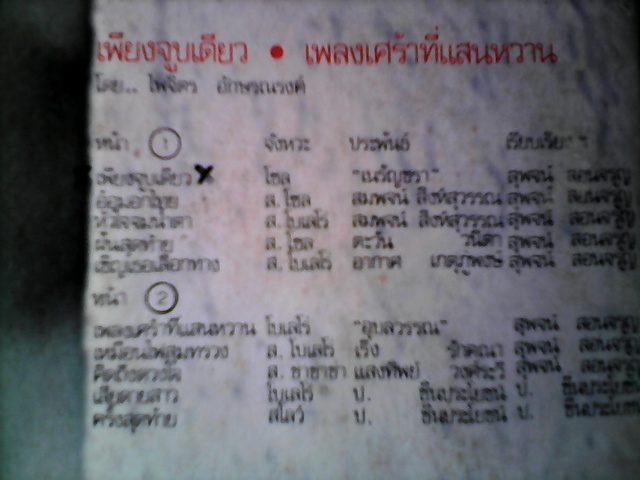 เพียงจูบเดียว • เพลงเศร้าที่แสนหวาน
โดย.. ไพจิตร อักษรณรงค์
หน้า 1 จังหวะ ประพันธ์ เรียบเรียง
เพียงจูบเดียว x โซล "เนรัญชรา" สุพจน์ สอนจรูญ
ส.โซล สมพจน์ สิงห์สุวรรณ สุพจน์ สอนจรูญ
หัวใจจมน้ำตา ส.โบเลโร่ สมพจน์ สิงห์สุวรรณ สุพจน์ สอนจรูญ
ฝันสุดท้าย ส.โซล ตะวัน วนิดา สุพจน์ สอนจรูญ
เชิญเธอเลือกทาง ส.โบเลโร่ อากาศ สุพจน์ สอนจรูญ
หน้า 2
เพลงเศร้าที่แสนหวาน โบเลโร่ "อุบลวรรณ" สุพจน์ สอนจรูญ
เหมือนไฟสุมทรวง ส. โบเลโร่ เริง รักคุณา สุพจน์ สอนจรูญ
ส. ชาชาช่า แสงทิพย์ สุพจน์ สอนจรูญ
เสียดายสาว โบเลโร่ ป. ชื่นประโยชน์ ป. ชื่นประโยชน์
ครั้งสุดท้าย สโลว์ ป. ชื่นประโยชน์ ป. ชื่นประโยชน์